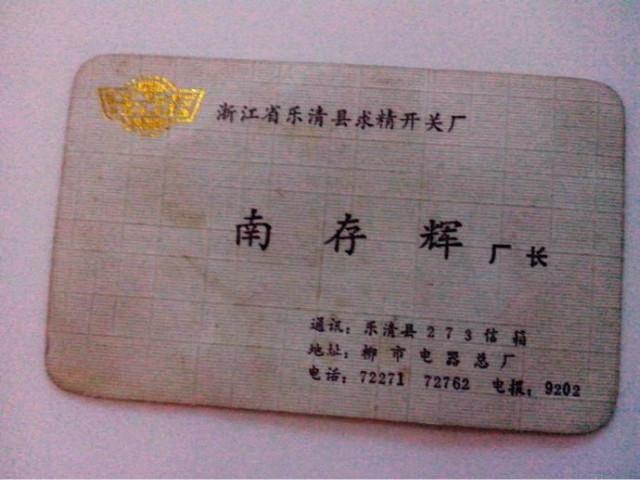 浙江省乐清县求精开关厂
南存辉 厂长
通讯：乐清县273信箱
地址：柳市电器总厂
电话：72271 72762 电报：9202